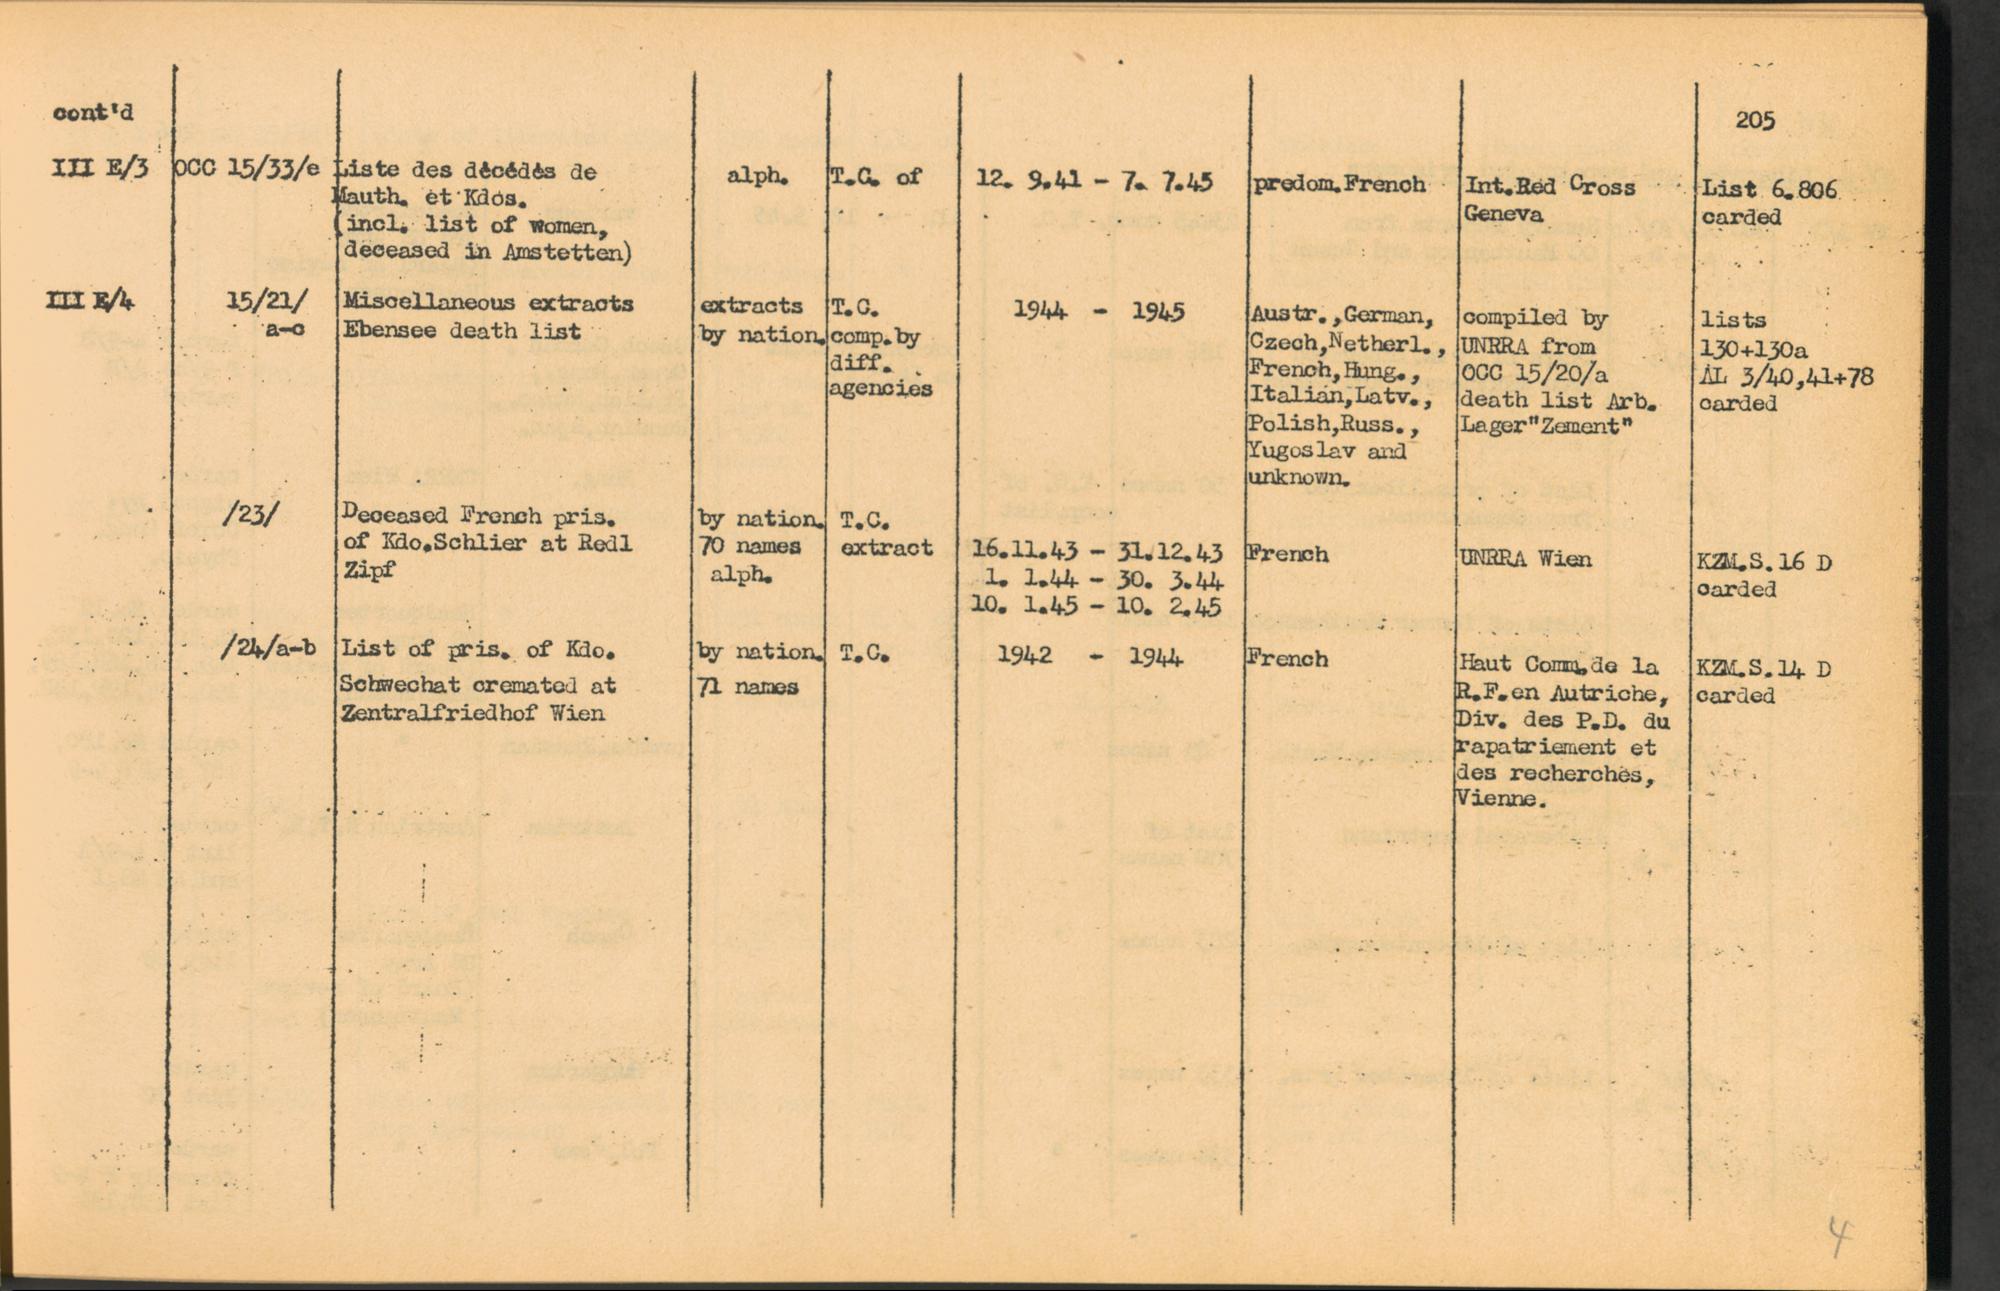 cont'd
205
III E/3 OCC 15/33/e Liste des décédés de alph. T.C. of 12. 9.41 - 7. 7.45 predom.French Int.Red Cross List 6.806
Mauth. et Kdos. Geneva carded
(incl. list of women,
deceased in Amstetten)
III E/4 15/21/ Miscellaneous extracts extracts T.C. 1944 - 1945 Austr.,German, compiled by lists
a-c Ebensee death list by nation. comp.by Czech,Netherl., UNRRA from 130+130a
diff. French,Hung., OCC 15/20/a AL 3/40,41+78
agencies Italian,Latv., death list Arb. carded
Polish,Russ., Lager"Zement"
Yugoslav and
unknown.
/23/ Deceased French pris. by nation. T.C.
of Kdo.Schlier at Redl 70 names extract 16.11.43 - 31.12.43 French UNRRA Wien KZM.S.16 D
Zipf alph. 1. 1.44 - 30. 3.44 carded
10. 1.45 - 10. 2.45
/24/a-b List of pris. of Kdo. by nation. T.C. 1942 - 1944 French Haut Comm.de la KZM.S.14 D
Schwechat cremated at 71 names R.F.en Autriche, carded
Zentralfriedhof Wien Div. des P.D. du
rapatriement et
des recherches,
Vienne.
4